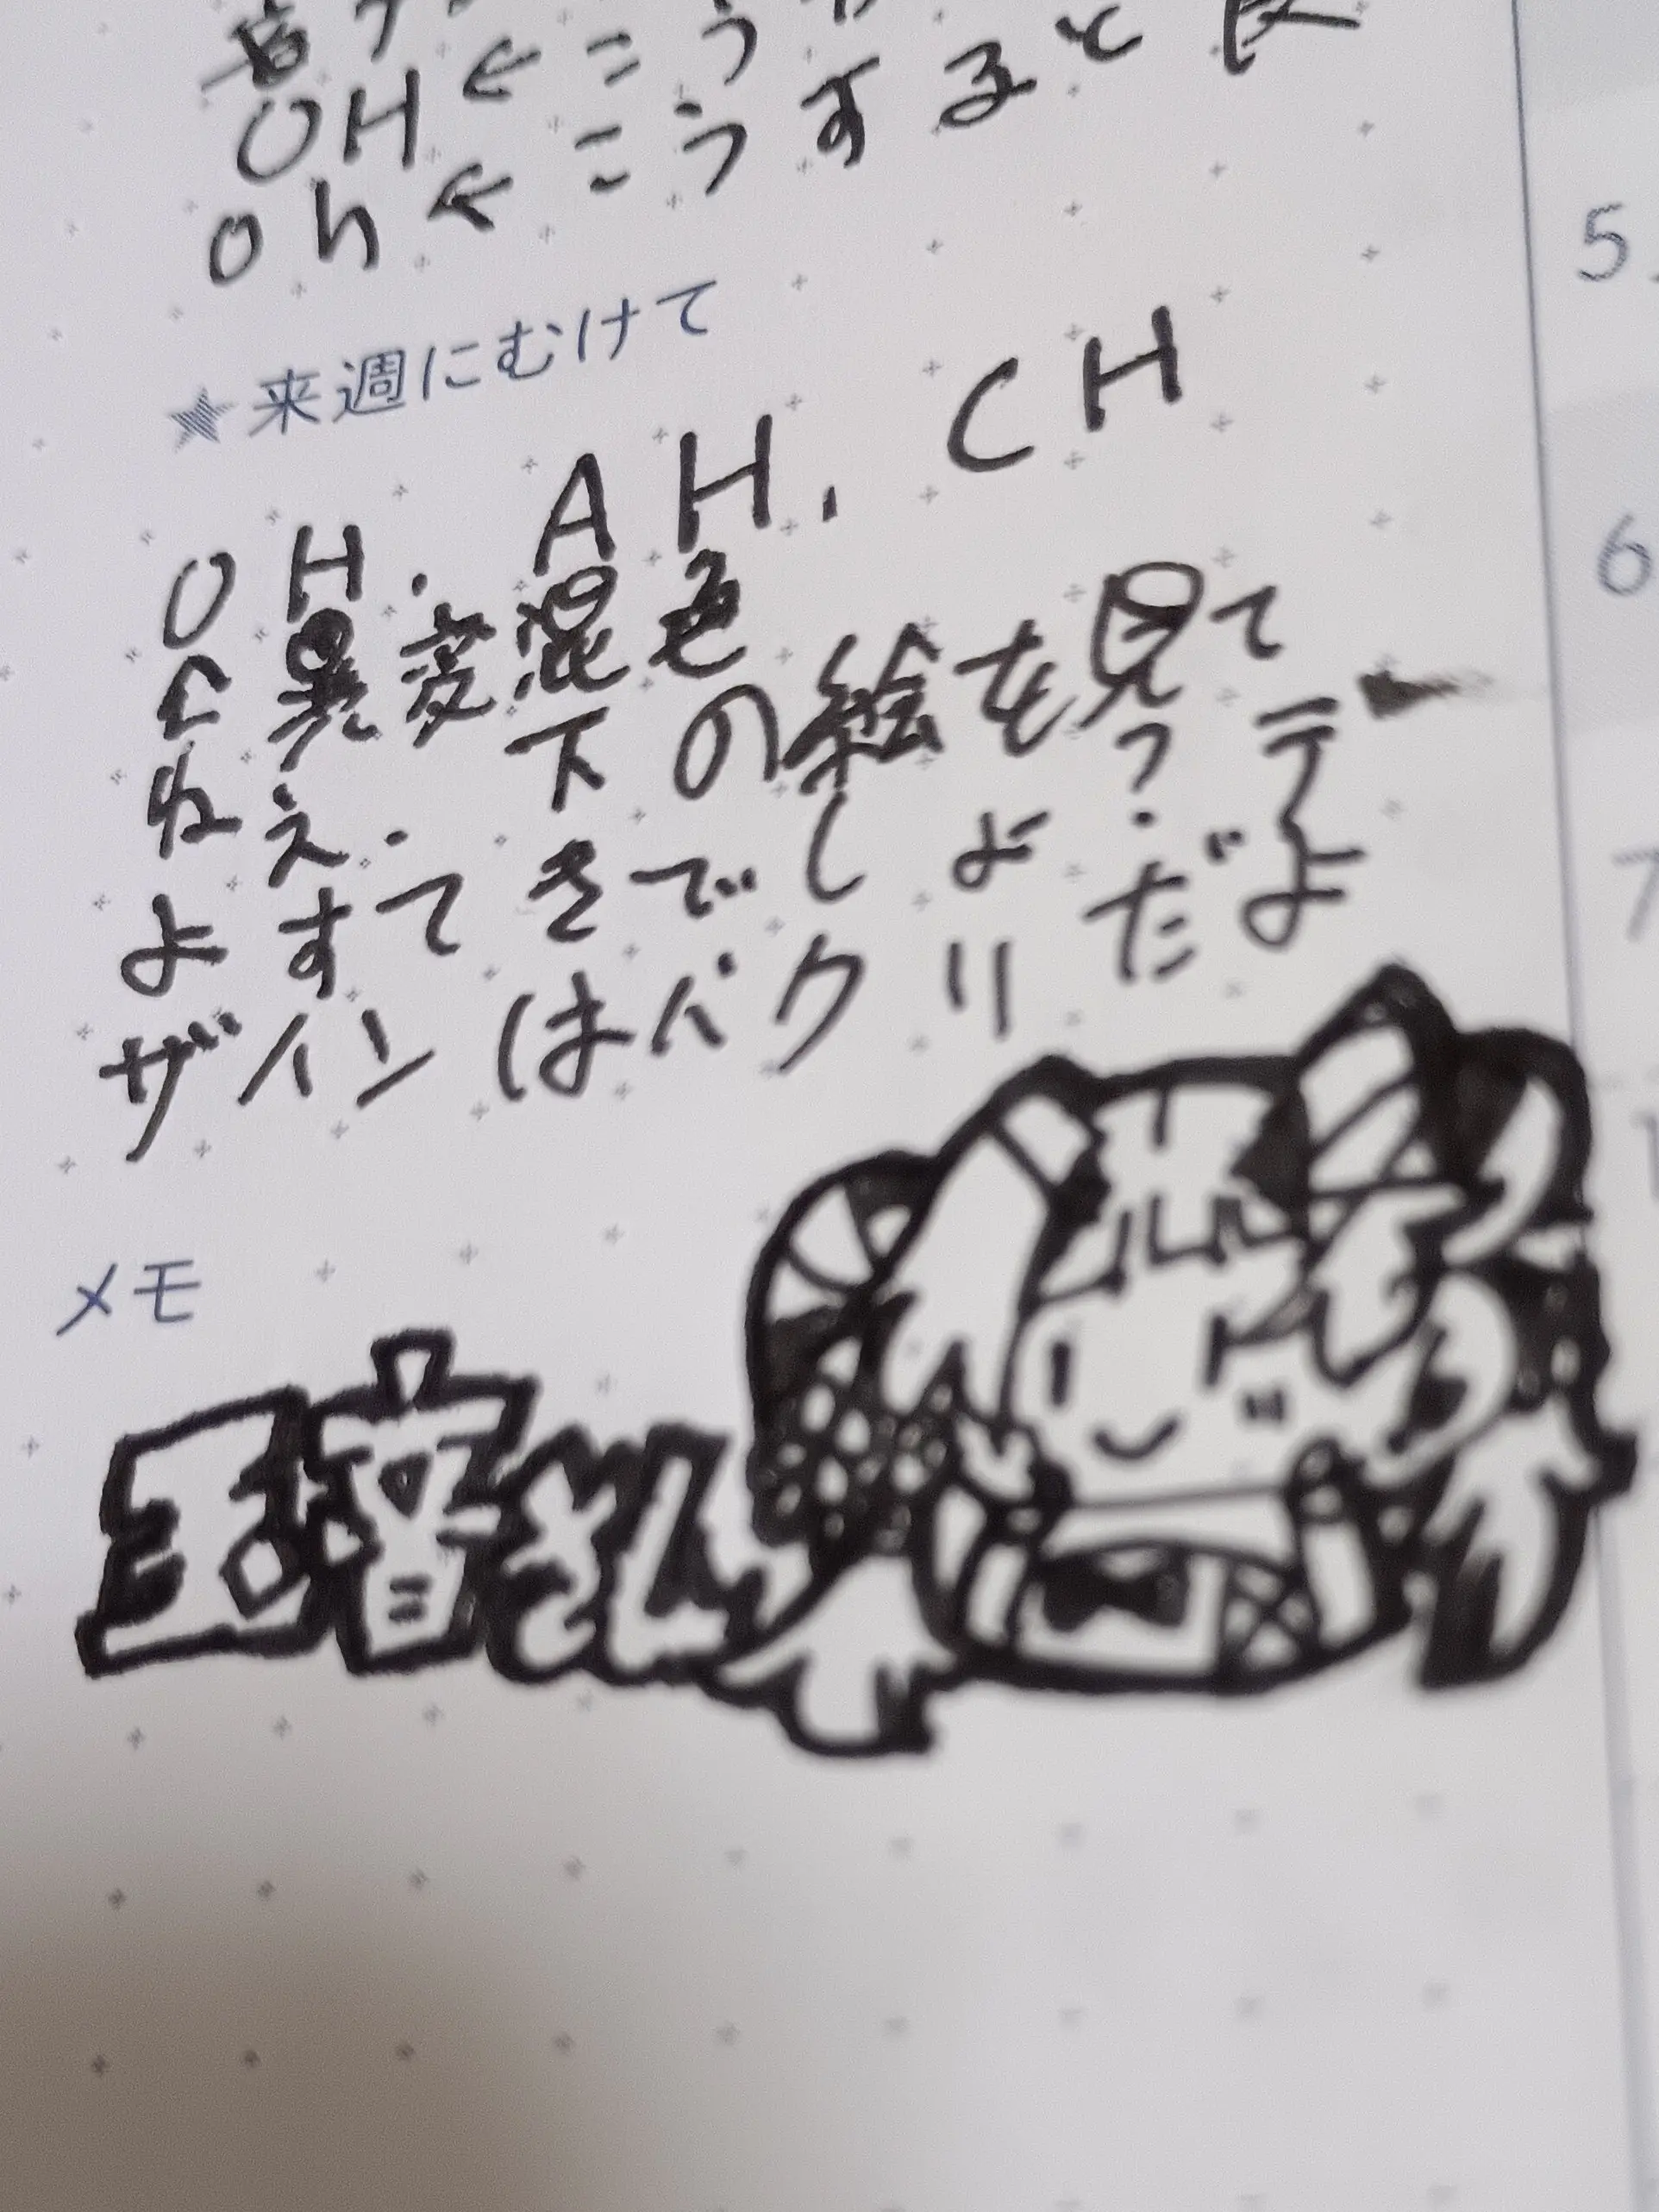 OH←こう
oh←こうすると
★来週にむけて
OH. AH, CH
と異変混色
ねえ. 下の絵を見て
よすてきでしょ?デ
ザインはパクリだよ
メモ
5
6
7